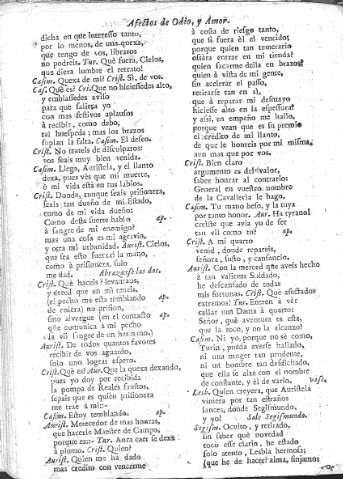 Afectos de Odio, y Amor.
dicha en que intereſſo tanto,
por lo menos, de una quexa,
que tengo de vos, libraros
no podreis. Tur. Què fuera, Cielos,
que diera lumbre el retrato!
Casim. Quexa de mi? Crist. Sì, de vos.
Cas. Què es? Cris. Que no hicieſſedes alto,
y embiaſſedes aviſo
para que ſalieſſe yo
con mas feſtivos aplauſos
à recibir, como debo,
tal hueſpeda; mas los brazos
ſuplan la falta. Casim. El deſeo.
Crist. No trateis de diſculparos
vos ſeais muy bien venida.
Casim. Llega, Auriſtela, y el llanto
dexa, pues vès que mi muerte,
ò mi vida eſtà en tus labios.
Crist. Donde, aunque ſeais priſionera,
ſeais tan dueño de mi Eſtado,
como de mi vida dueño:
Como deſta ſuerte hablo ap.
à ſangre de mi enemigo?
mas una coſa es mi agravio,
y otra mi urbanidad. Aurist. Cielos,
que ſea eſto fuerza! la mano,
como à priſionera, ſolo
me dad. Abrazanſe las dos.
Crist. Què haceis? levantaos,
y creed que en mi eſcuela,
(el pecho me eſtà temblando ap.
de embra) no priſion,
ſino alvergue (en el contacto ap.
que comunica à mi pecho
la vil ſangre de un hermano)
Aurist. De todos quantos favores
recibir de vos aguardo,
ſolo uno lograr eſpero.
Crist. Què es? Aur. Que la quexa dexando,
pues yo doy por recibida
la pompa de Reales fauſtos,
ſepais que es quien priſionera
me trae à mi--
Casim. Eſtoy temblando. ap.
Aurist. Merecedor de mas honras,
que hacerle Maeſtre de Campo,
porque ean- Tur. Aora caes le dexa
à plomo. Crist. Quien?
Aurist. Quien no ha dado
mas credito con vencerme
à coſta de rieſgo tanto,
que ſi fuera èl el vencido;
porque quien tan temerario
oſàra entrar en mi tienda?
quien ſacarme della en brazos?
quien à viſta de mi gente,
ſin acelerar el paſſo,
retirarſe tan en sì,
que à reparar mi deſmayo
hicieſſe alto en la eſpeſſura?
y aſsi, en empeño me hallo,
porque vean que es ſu premio
el credito de mi llanto,
de que le honreis por mi miſma,
aun mas que por vos.
Crist. Bien claro
argumento es de valor,
ſaber honrar al contrario:
General en vueſtro nombre
de la Cavalleria le hago.
Casim. Tu mano beſo, y la tuya
por tanto honor. Aur. Ha tyrano!
creiſte que avia yo de ſer
tan vil como tu? ap.
Crist. A mi quarto
venid, donde repareis,
ſeñora, ſuſto, y canſancio.
Aurist. Con la merced que aveis hecho
à tan valiente Soldado,
he deſcanſado de todas
mis fortunas. Crist. Què afectados
extremos! Tur. Entren à ver
callar una Dama à quatro:
Señor, què aventura es eſta,
que la toco, y no la alcanzo?
Casim. Ni yo, porque no sè como,
Turin, pueda averſe hallado,
ni una muger tan prudente,
ni un hombre tan deſdichado,
que ella ſe alze con el nombre
de conſtante, y èl de vario. vaſe.
Lesb. Quien creyera, que Auriſtela
viniera por tan eſtraños
lances, donde Segiſmundo,
y yo! Sale Segiſmundo.
Segiſm. Oculto, y retirado,
ſin ſaber què novedad
toco eſſe clarin, he eſtado
ſolo atento, Lesbia hermoſa;
(que he de hacer? alma, finjamos